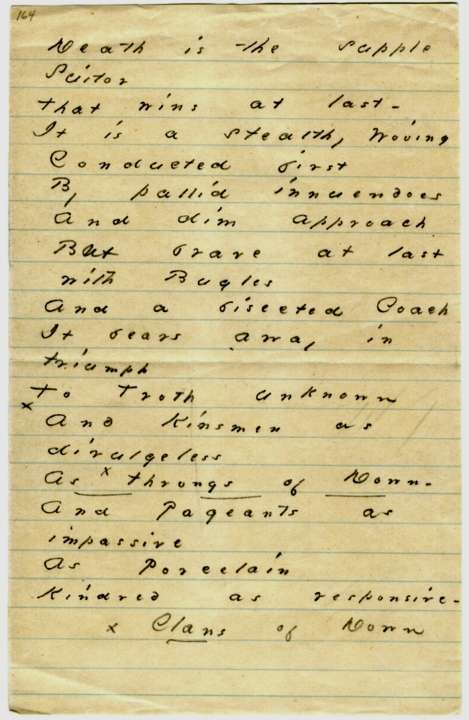 164
Death is the supple
Suitor
that wins at last -
It is a stealthy Wooing
Conducted first
By pallid innuendoes
And dim approach
But brave at last
with Bugles
And a bisected Coach
It bears away in
triumph
To Troth unknown
x
And Kinsmen as
divulgeless
As x throngs of Down -
And Pageants as
impassive
As Porcelain
Kindred as responsive -
x Clans of Down